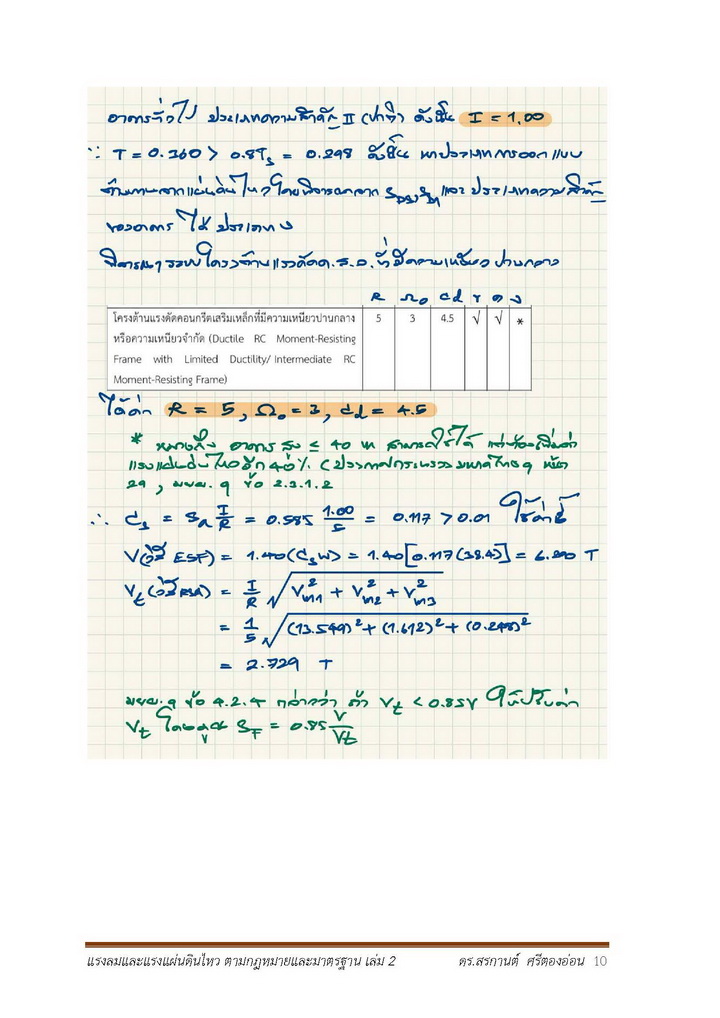 อาคารทั่วไป ประเภทความสำคัญ II (ปกติ) ดังนั้น I = 1.00
∵ T = 0.360 > 0.8Ts = 0.298 ดังนั้น หาประเภทการออกแบบ
ต้านทานแรงแผ่นดินไหวโดยพิจารณาจาก SDS, SD1 และ ประเภทความสำคัญ
ของอาคาร ได้ ประเภท ง
พิจารณา ระบบโครงต้านแรงดัดค.ส.ล.ที่มีความเหนียวปานกลาง
R Ω₀ Cd ข ค ง
โครงต้านแรงดัดคอนกรีตเสริมเหล็กที่มีความเหนียวปานกลาง 5 3 4.5 √ √ *
หรือความเหนียวจำกัด (Ductile RC Moment-Resisting
Frame with Limited Ductility/ Intermediate RC
Moment-Resisting Frame)
ได้ค่า R = 5, Ω₀ = 3, Cd = 4.5
* หมายถึง อาคาร สูง ≤ 40 ม สามารถใช้ได้ แต่ต้องเพิ่มค่า
แรงแผ่นดินไหวอีก 40% (ประกาศกระทรวงมหาดไทยฯ หน้า
29, มยผ.ฯ ข้อ 2.3.1.2
∴ Cs = Sa I/R = 0.585 1.00/5 = 0.117 > 0.01 ใช้ค่านี้
V(วิธี ESF) = 1.40(CsW) = 1.40[0.117(38.4)] = 6.290 T
Vt(วิธี RSA) = I/R √(Vm1² + Vm2² + Vm3²)
= 1/5 √((13.549)² + (1.612)² + (0.248)²)
= 2.729 T
มยผ.ฯ ข้อ 4.2.4 กล่าวว่า ถ้า Vt < 0.85V ให้ปรับค่า
Vt โดยคูณ SF = 0.85 V/Vt
แรงลมและแรงแผ่นดินไหว ตามกฎหมายและมาตรฐาน เล่ม 2 ดร.สรกานต์ ศรีตองอ่อน 10